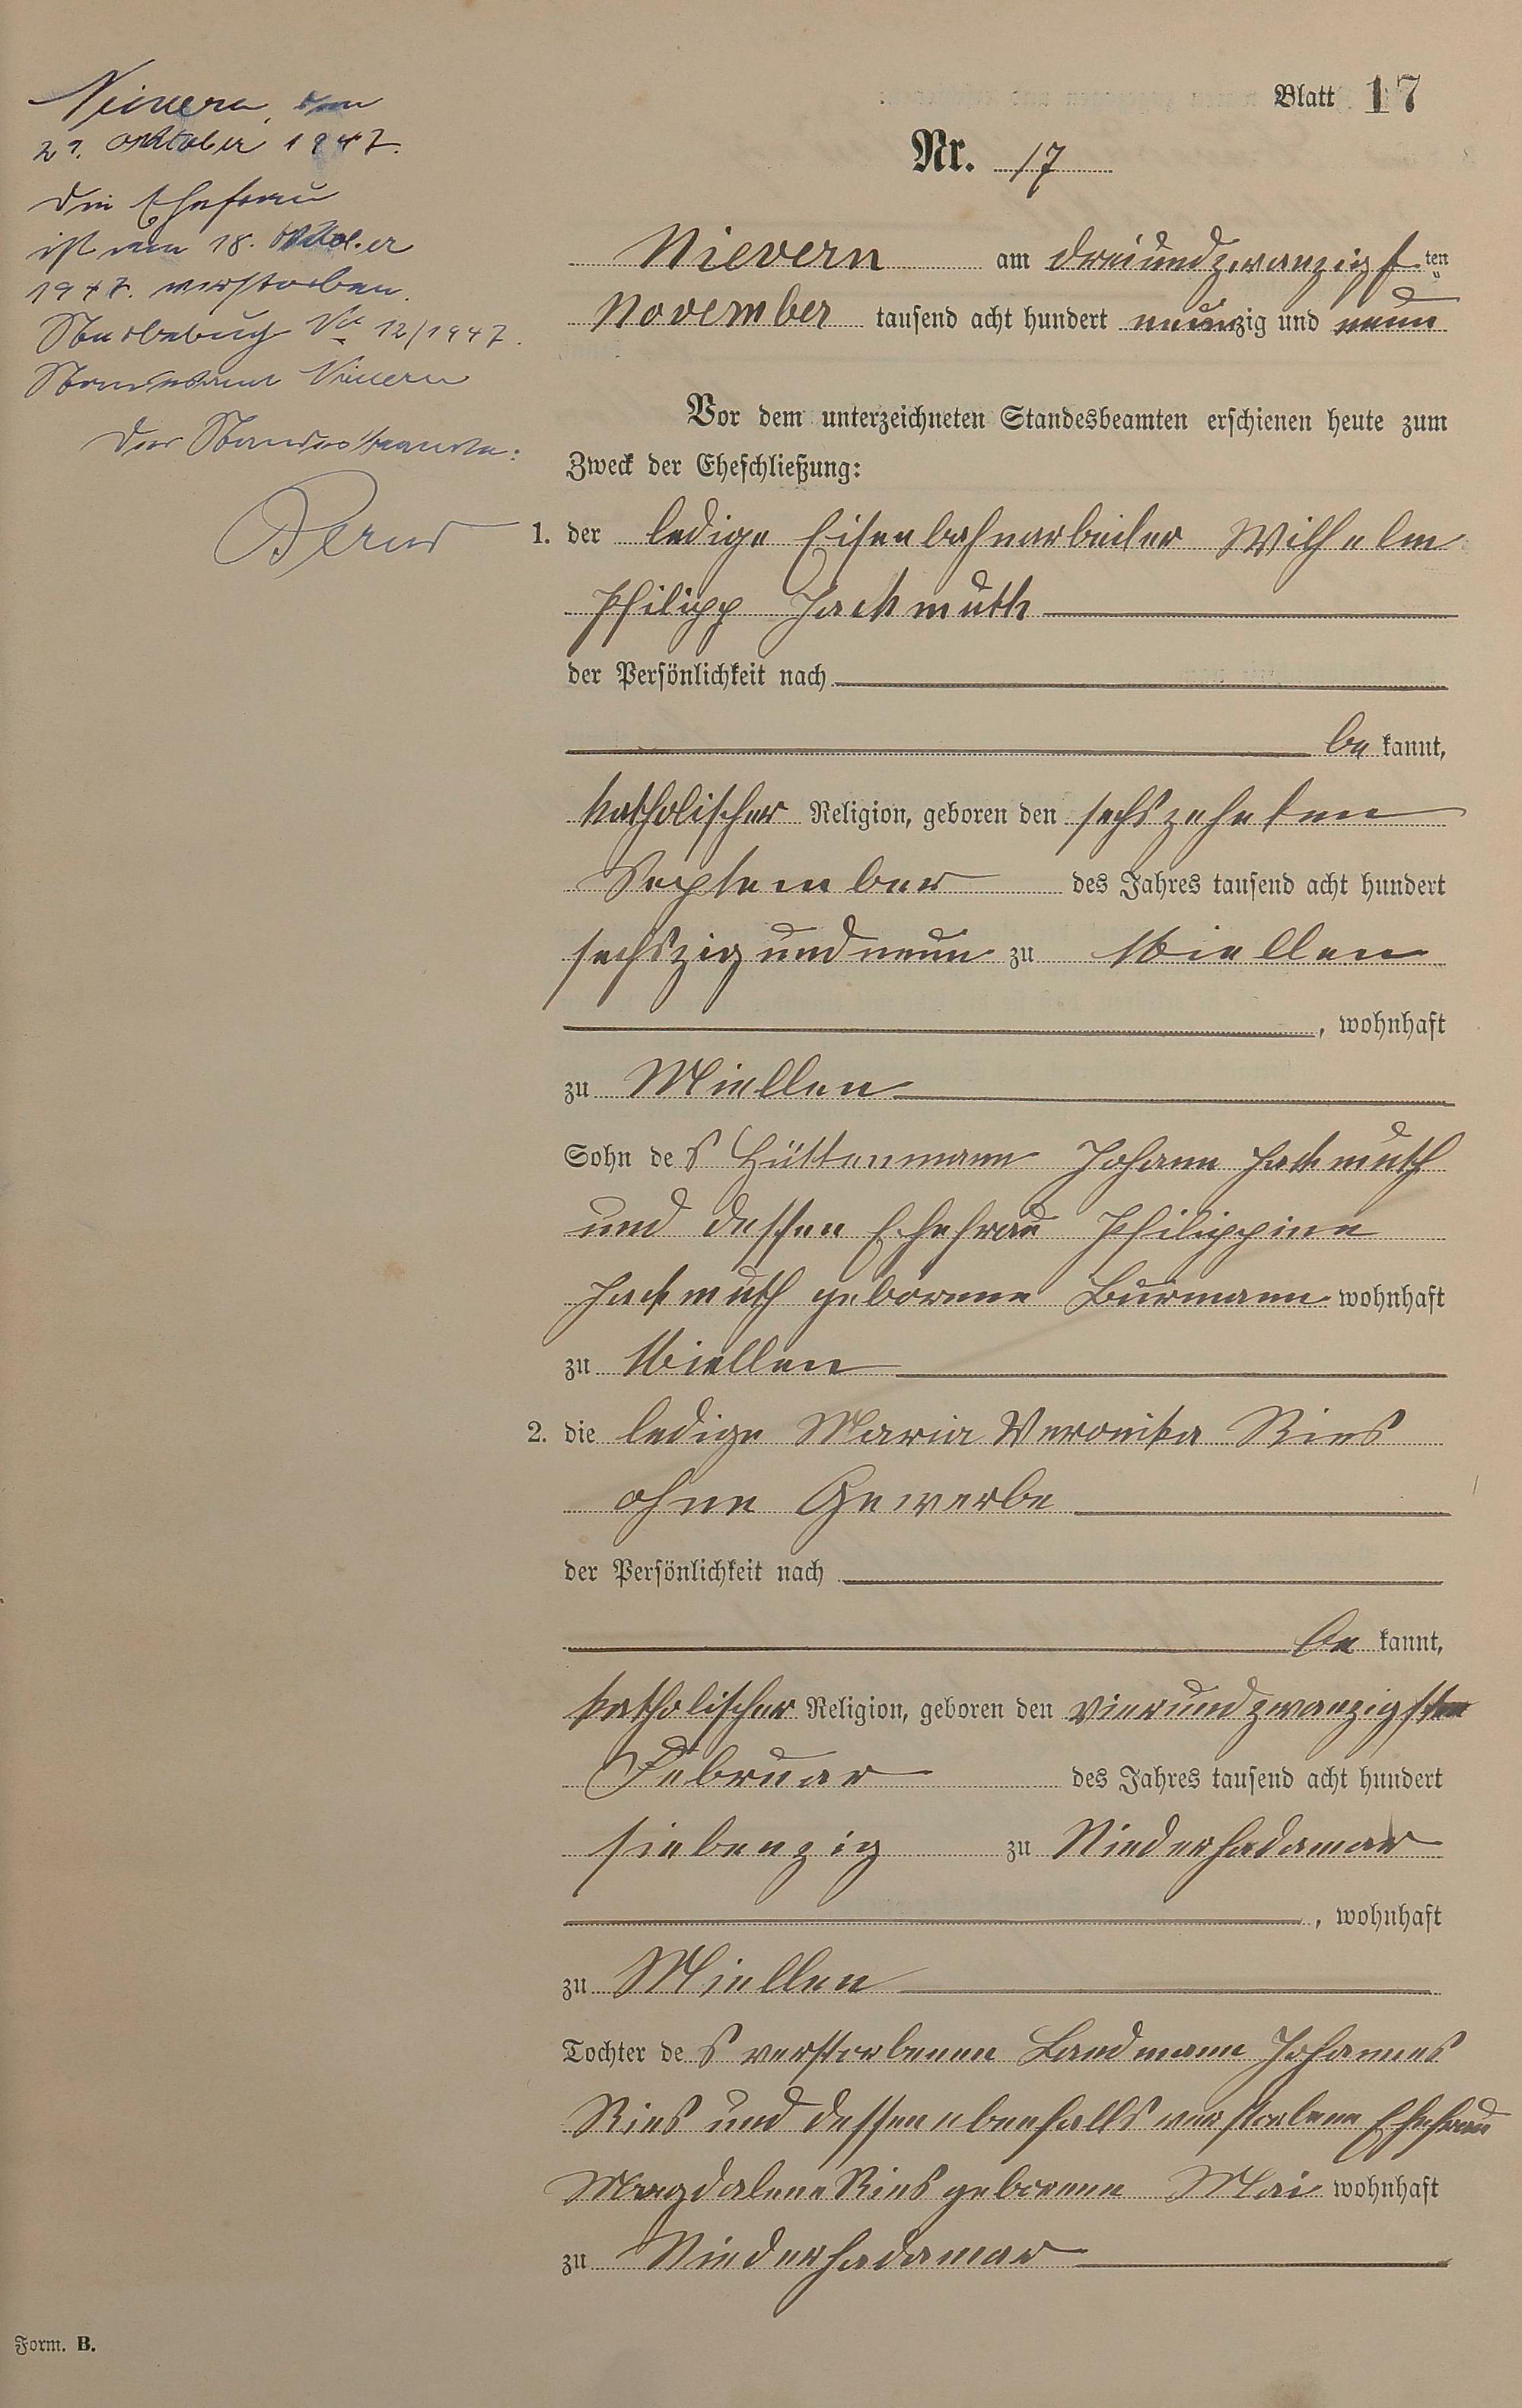 Nievern, den
21. Oktober 1947.
Die Ehefrau
ist am 18. Oktober
1947 verstorben.
Sterbebuch Nr 12/1947.
Standesamt Nievern
Der Standesbeamte:
Blatt 17
Nr. 17
Nievern am dreiundzwanzigsten
November tausend acht hundert neunzig und neun
Vor dem unterzeichneten Standesbeamten erschienen heute zum
Zweck der Eheschließung:
1. der ledige Eisenbahnarbeiter Wilhelm
Philipp Jackmuth
der Persönlichkeit nach
bekannt,
katholischer Religion, geboren den sechszehnten
September des Jahres tausend acht hundert
sechszig und neun zu Miellen
, wohnhaft
zu Miellen
Sohn des Hüttenmann Johann Jackmuth
und dessen Ehefrau Philippine
Jackmuth geborenen Burmann wohnhaft
zu Miellen
2. die ledige Maria Veronika Ries
ohne Gewerbe
der Persönlichkeit nach
bekannt,
katholischer Religion, geboren den vierundzwanzigsten
Februar des Jahres tausend acht hundert
siebenzig zu Niederhadamar
, wohnhaft
zu Miellen
Tochter des verstorbenen Landmann Johannes
Ries und dessen ebenfalls verstorbene Ehefrau
Magdalene Ries geborenen Mai wohnhaft
zu Niederhadamar
Form. B.